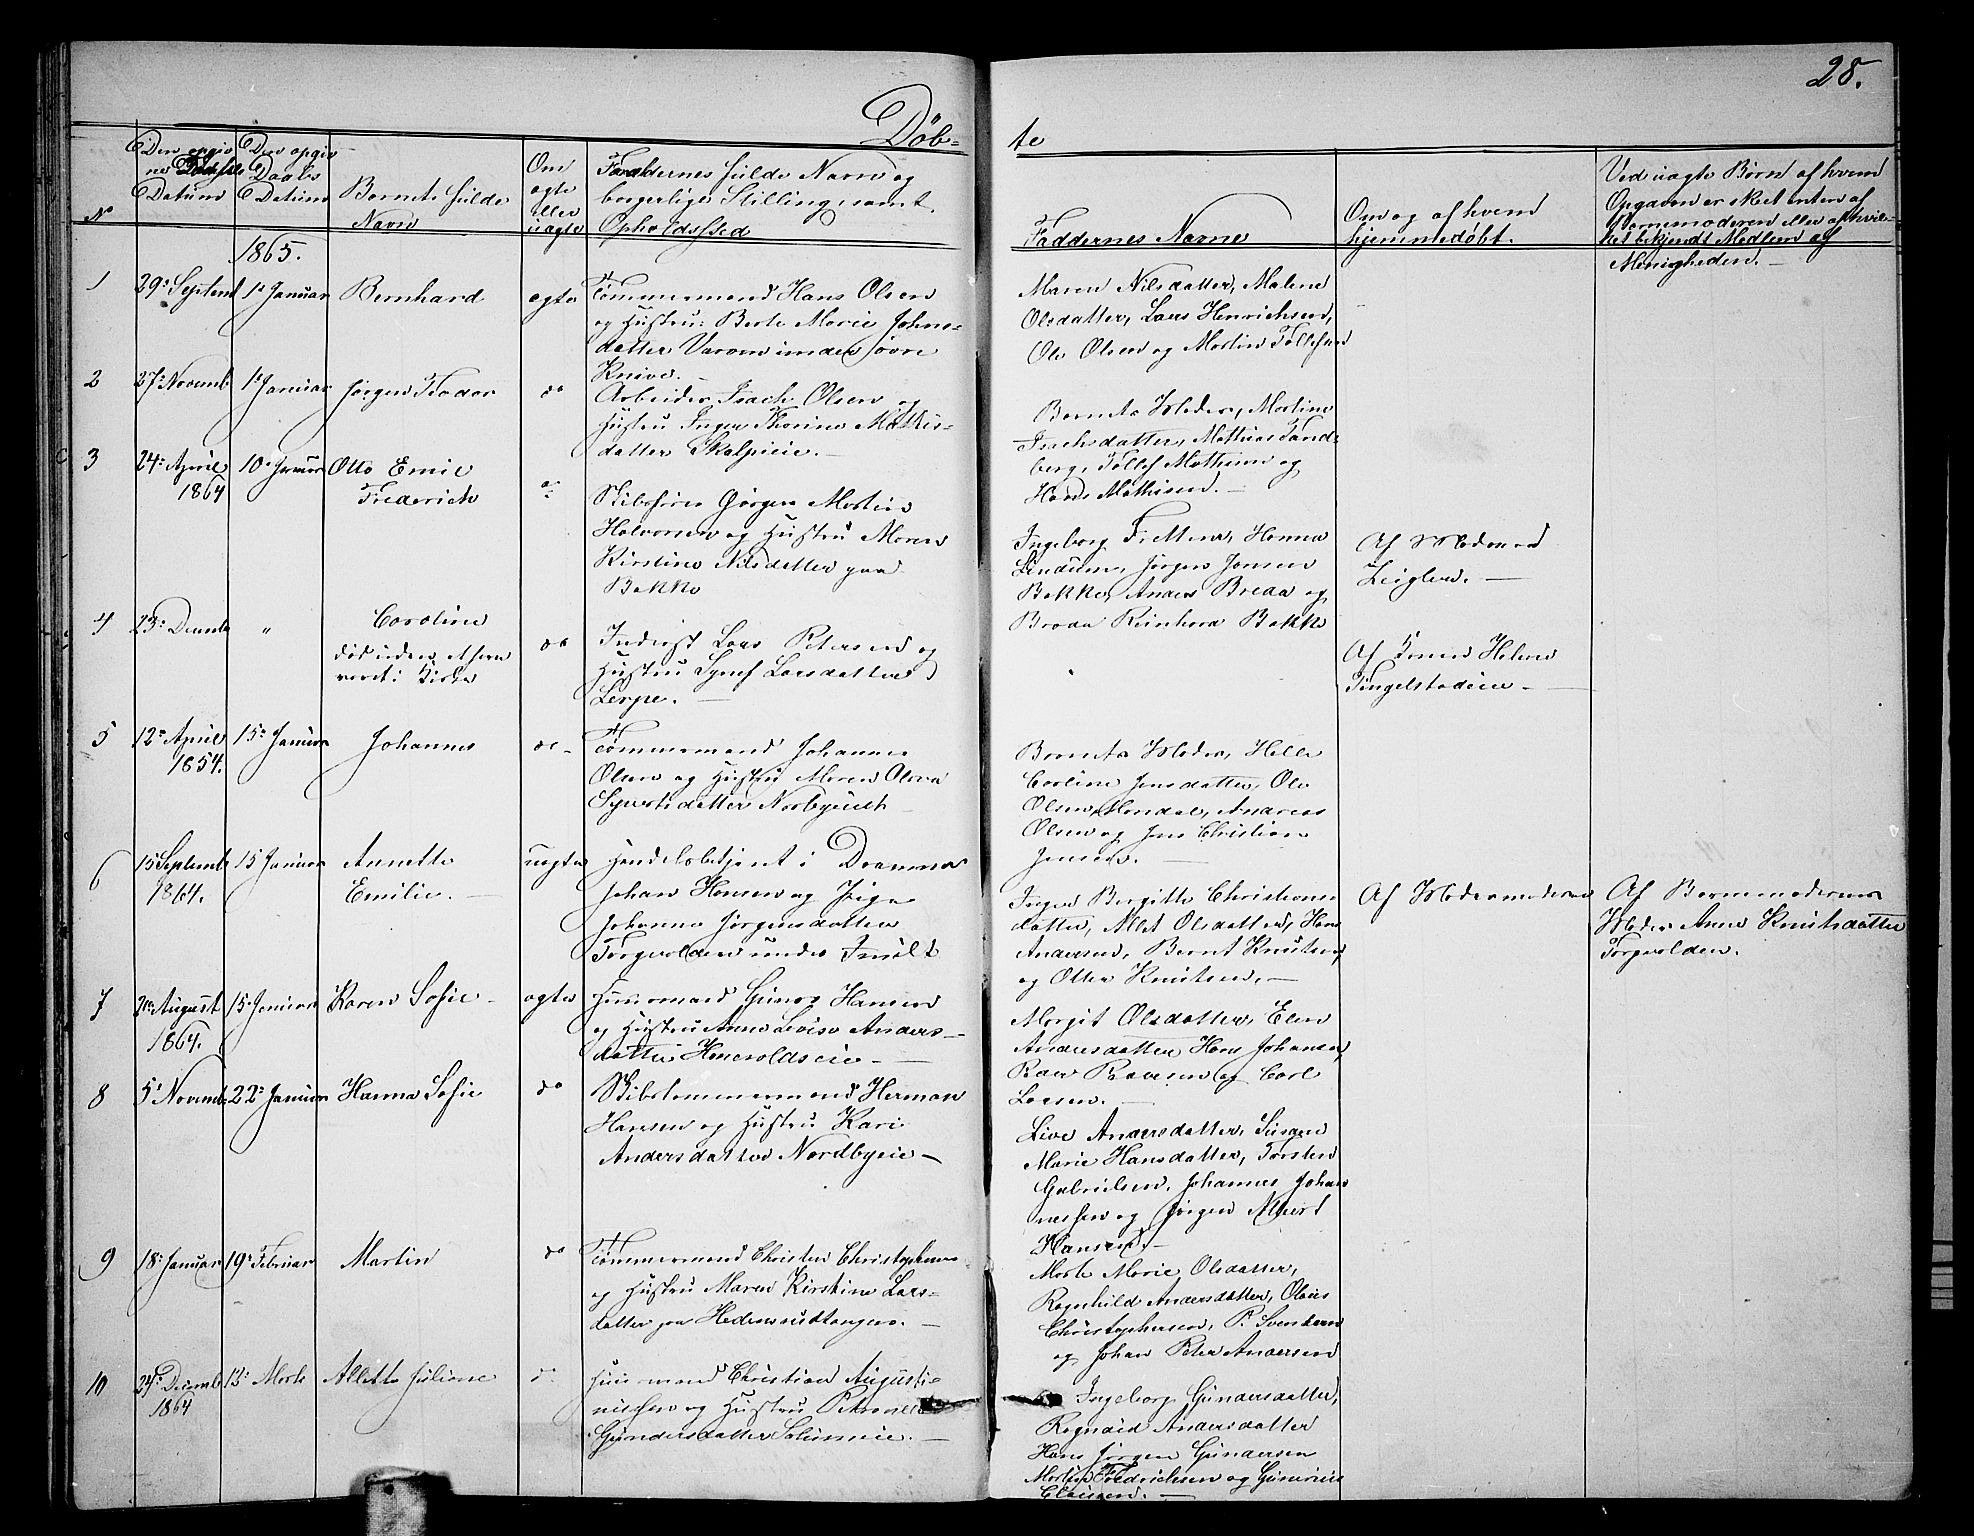 28.
Döb-
te
No
Den opgiv
ne Fødsels
Datum
Den opgiv
Daabs
Datum
Barnets fulde
Navn
Om
ægte
eller
uægte
Foreldernes fulde Navn og
borgerlige Stilling, samt
Opholdssted
Faddernes Navne
Om og af hvem
hjemmedøbt.
Ved uægte Børn af hvem
Opgaven er skeet enten af
Barnemoderen eller af hvil-
ket bekjendt Medlem af
Menigheden.
1865.
1
29de Septemb
1ste Januar
Bernhard
ægte
Tømmermand Hans Olsen
og Hustru: Berte Marie Johns-
datter under søvre
Knive.
Maren Nilsdatter, Malene
Olsdatter, Lars Henrichsen,
Ole Olsen og Martin Tollefsen
2
27de Novemb
1ste Januar
Jørgen Teodor
do
Arbeider Isach Olsen og
Hustru Inger Thorine Mathis-
datter Skalpieie.
Barnets Moder, Martine
Isachsdatter, Mathias Tand-
berg, Tollef Mathisen og
Hans Mathisen.
3
24de April
1864
10de Januar
Otto Emil
Frederich
do
Skibsfører Jørgen Martin
Halvorsen og Hustru Maren
Kirstine Nilsdatter paa
Bakke
Ingeborg Hanna
Lindum, Jørgen Jensen
Bakke, Anders Breda og
Reinhard Bakke
Af Madame
Zeigler.
4
23de Decemb
"
Caroline
død uden at have
været i Kirke
do
Inderst Lars Petersen og
Hustru Synef Larsdatter
Lerpe.
Af Konen Helene
Tingelstadeie
5
12te April
1854.
15de Januar
Johannes
do
Tømmermand Johannes
Olsen og Hustru Maren Olava
Syvertsdatter Norbyeiet
Barnets Moder, Helle
Caroline Jensdatter, Ole
Olsen Andreas
Olsen og Jens Christian
Jensen.
6
15 Septemb
1864.
15 Januar
Annette
Emilie.
uægte
Handelsbetjent i Drammen
Johan Hansen og Pige
Johanne Jørgensdatter
Torgevolden under Smilt
Inger Bergitte Christians-
datter, Allet Olsdatter, Hans
Andersen, Bernt Knutsen,
og Otter Knutsen.
Af Modermoderen
Af Barnemoderens
Moder Anne Knutsdatter
Torpvolden.
7
August
1864.
15de Januar
Karen Sofie
ægte
Huusmand Gunder Hansen
og Hustru Anne Lovise Anders-
datter Haneroldseie
Margit Olsdatter, Elen
Andersdatter, Hans Johansen,
Roer Roersen og Carl
Larsen.
8
5te Novemb
22de Januar
Hanna Sofie
do
Skibstømmermand Herman
Hansen og Hustru Kari
Andersdatter Nordbyeie
Live Andersdatter, Siren
Marie Hansdatter, Torsten
Gabrielsen, Johannes Johan
nessen og Jørgen
Hansen.
9
18de Januar
19de Februar
Martin
do
Tømmermand Christen Christophersen
og Hustru Maren Kirstine Lars-
datter paa Hedensruttangen.
Marte Marie Olsdatter,
Ragnhild Andersdatter, Olaus
Christophersen, P. Svendsen
og Johan Peter Andersen
10
24de Decemb
1864
13de Marts
Allette Juliane
do
Huusmand Christian Augusti-
nussen og Hustru Petronelle
Gundersdatter Solumeie.
Ingeborg Gundersdatter,
Ragnild Andersdatter
Hans Jørgen Gundersen
Martin Fredrichsen og Gunerius
Clausen.